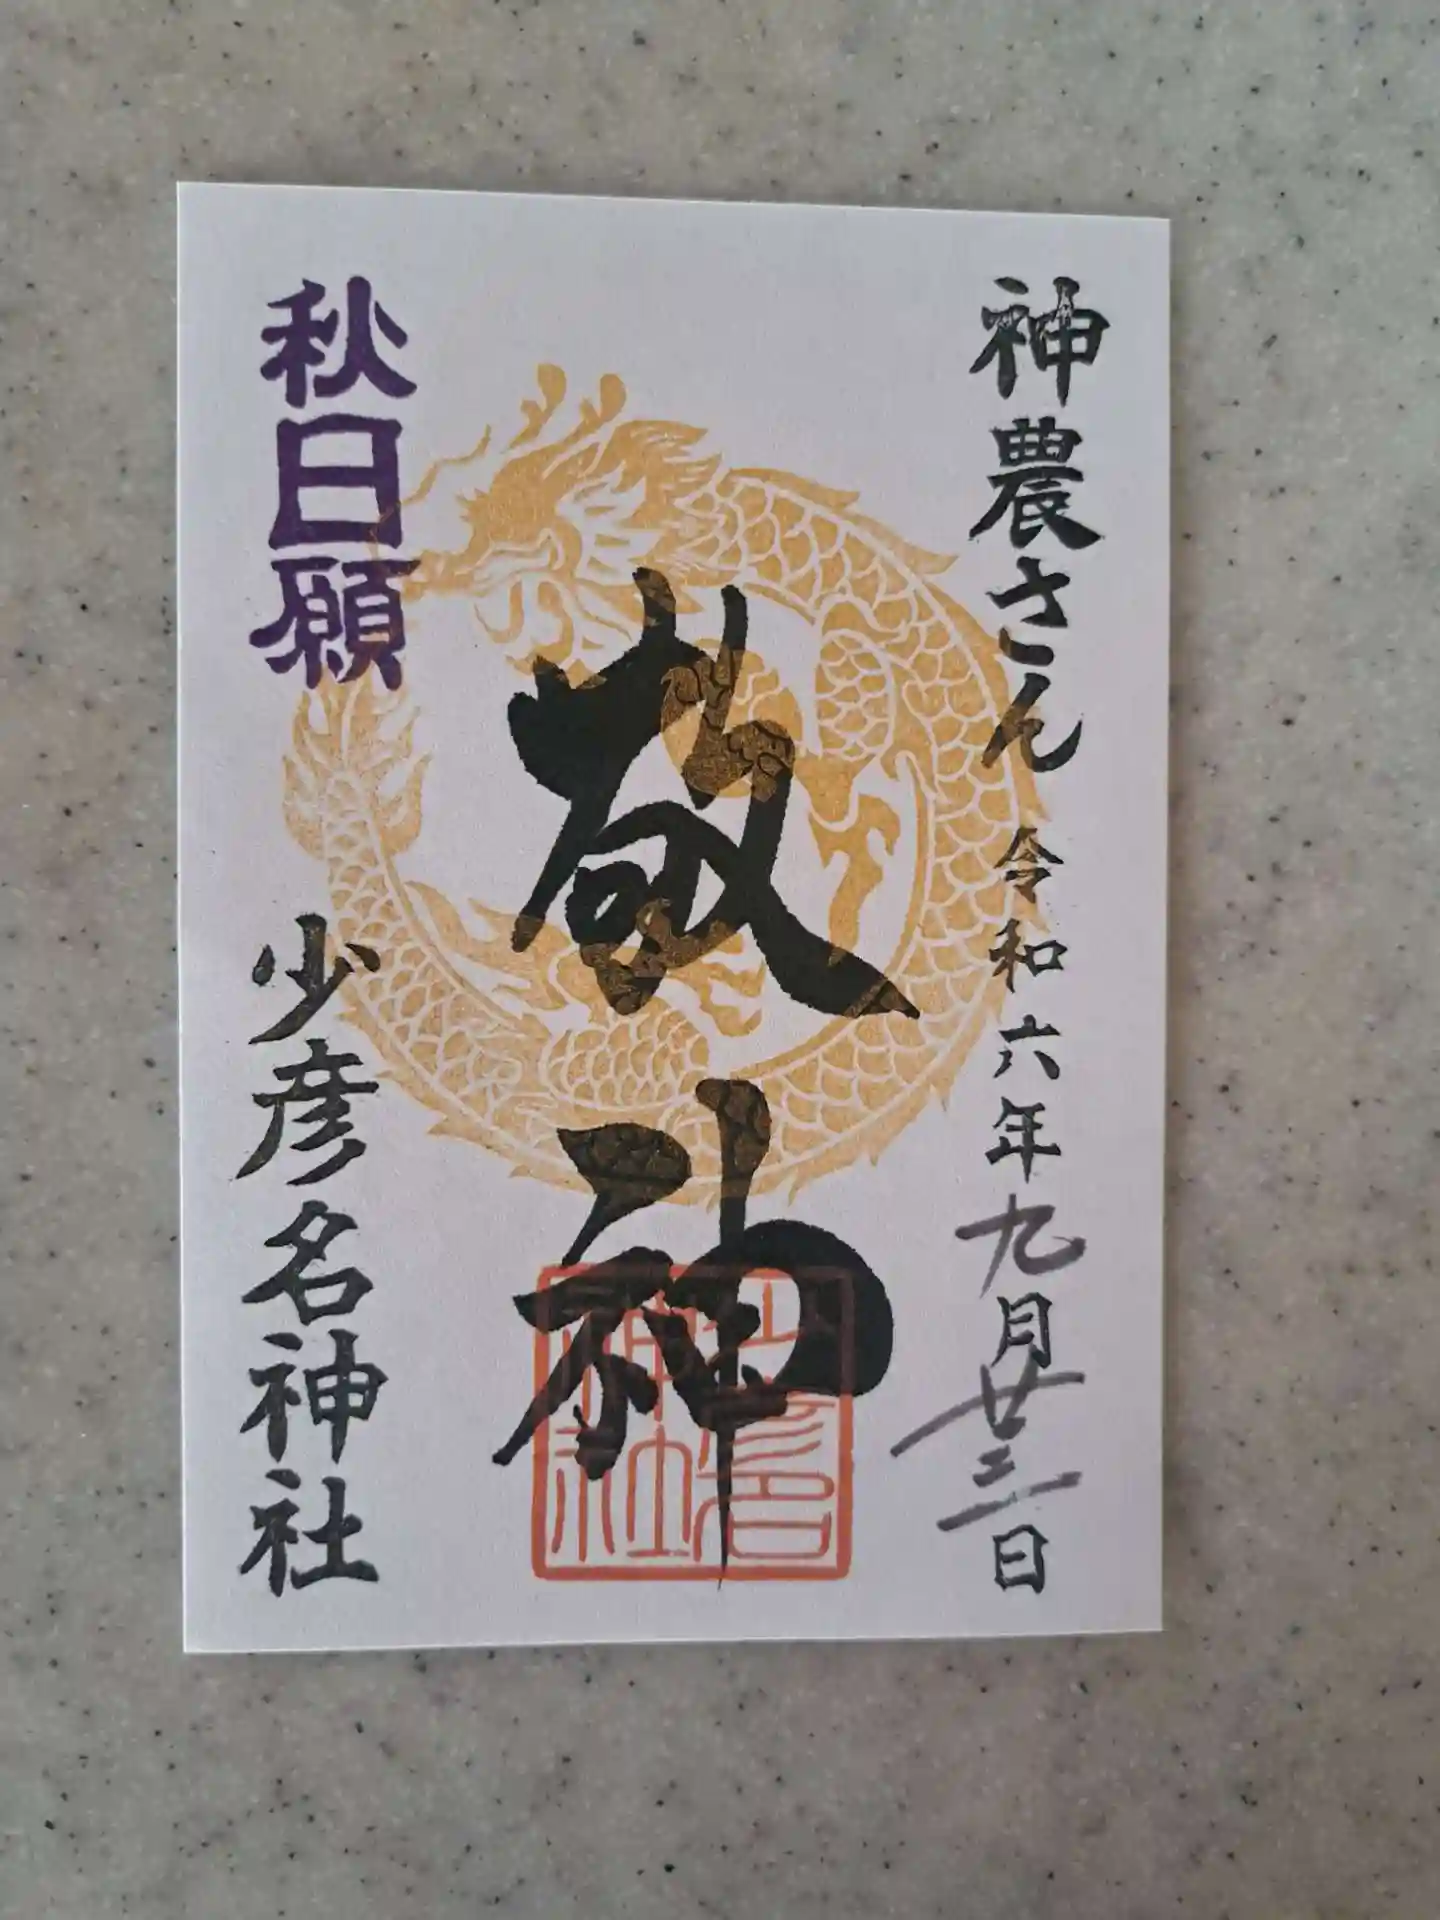 神農さん 令和六年九月廿三日
敬神
秋日願
少彦名神社
少彦名
神社